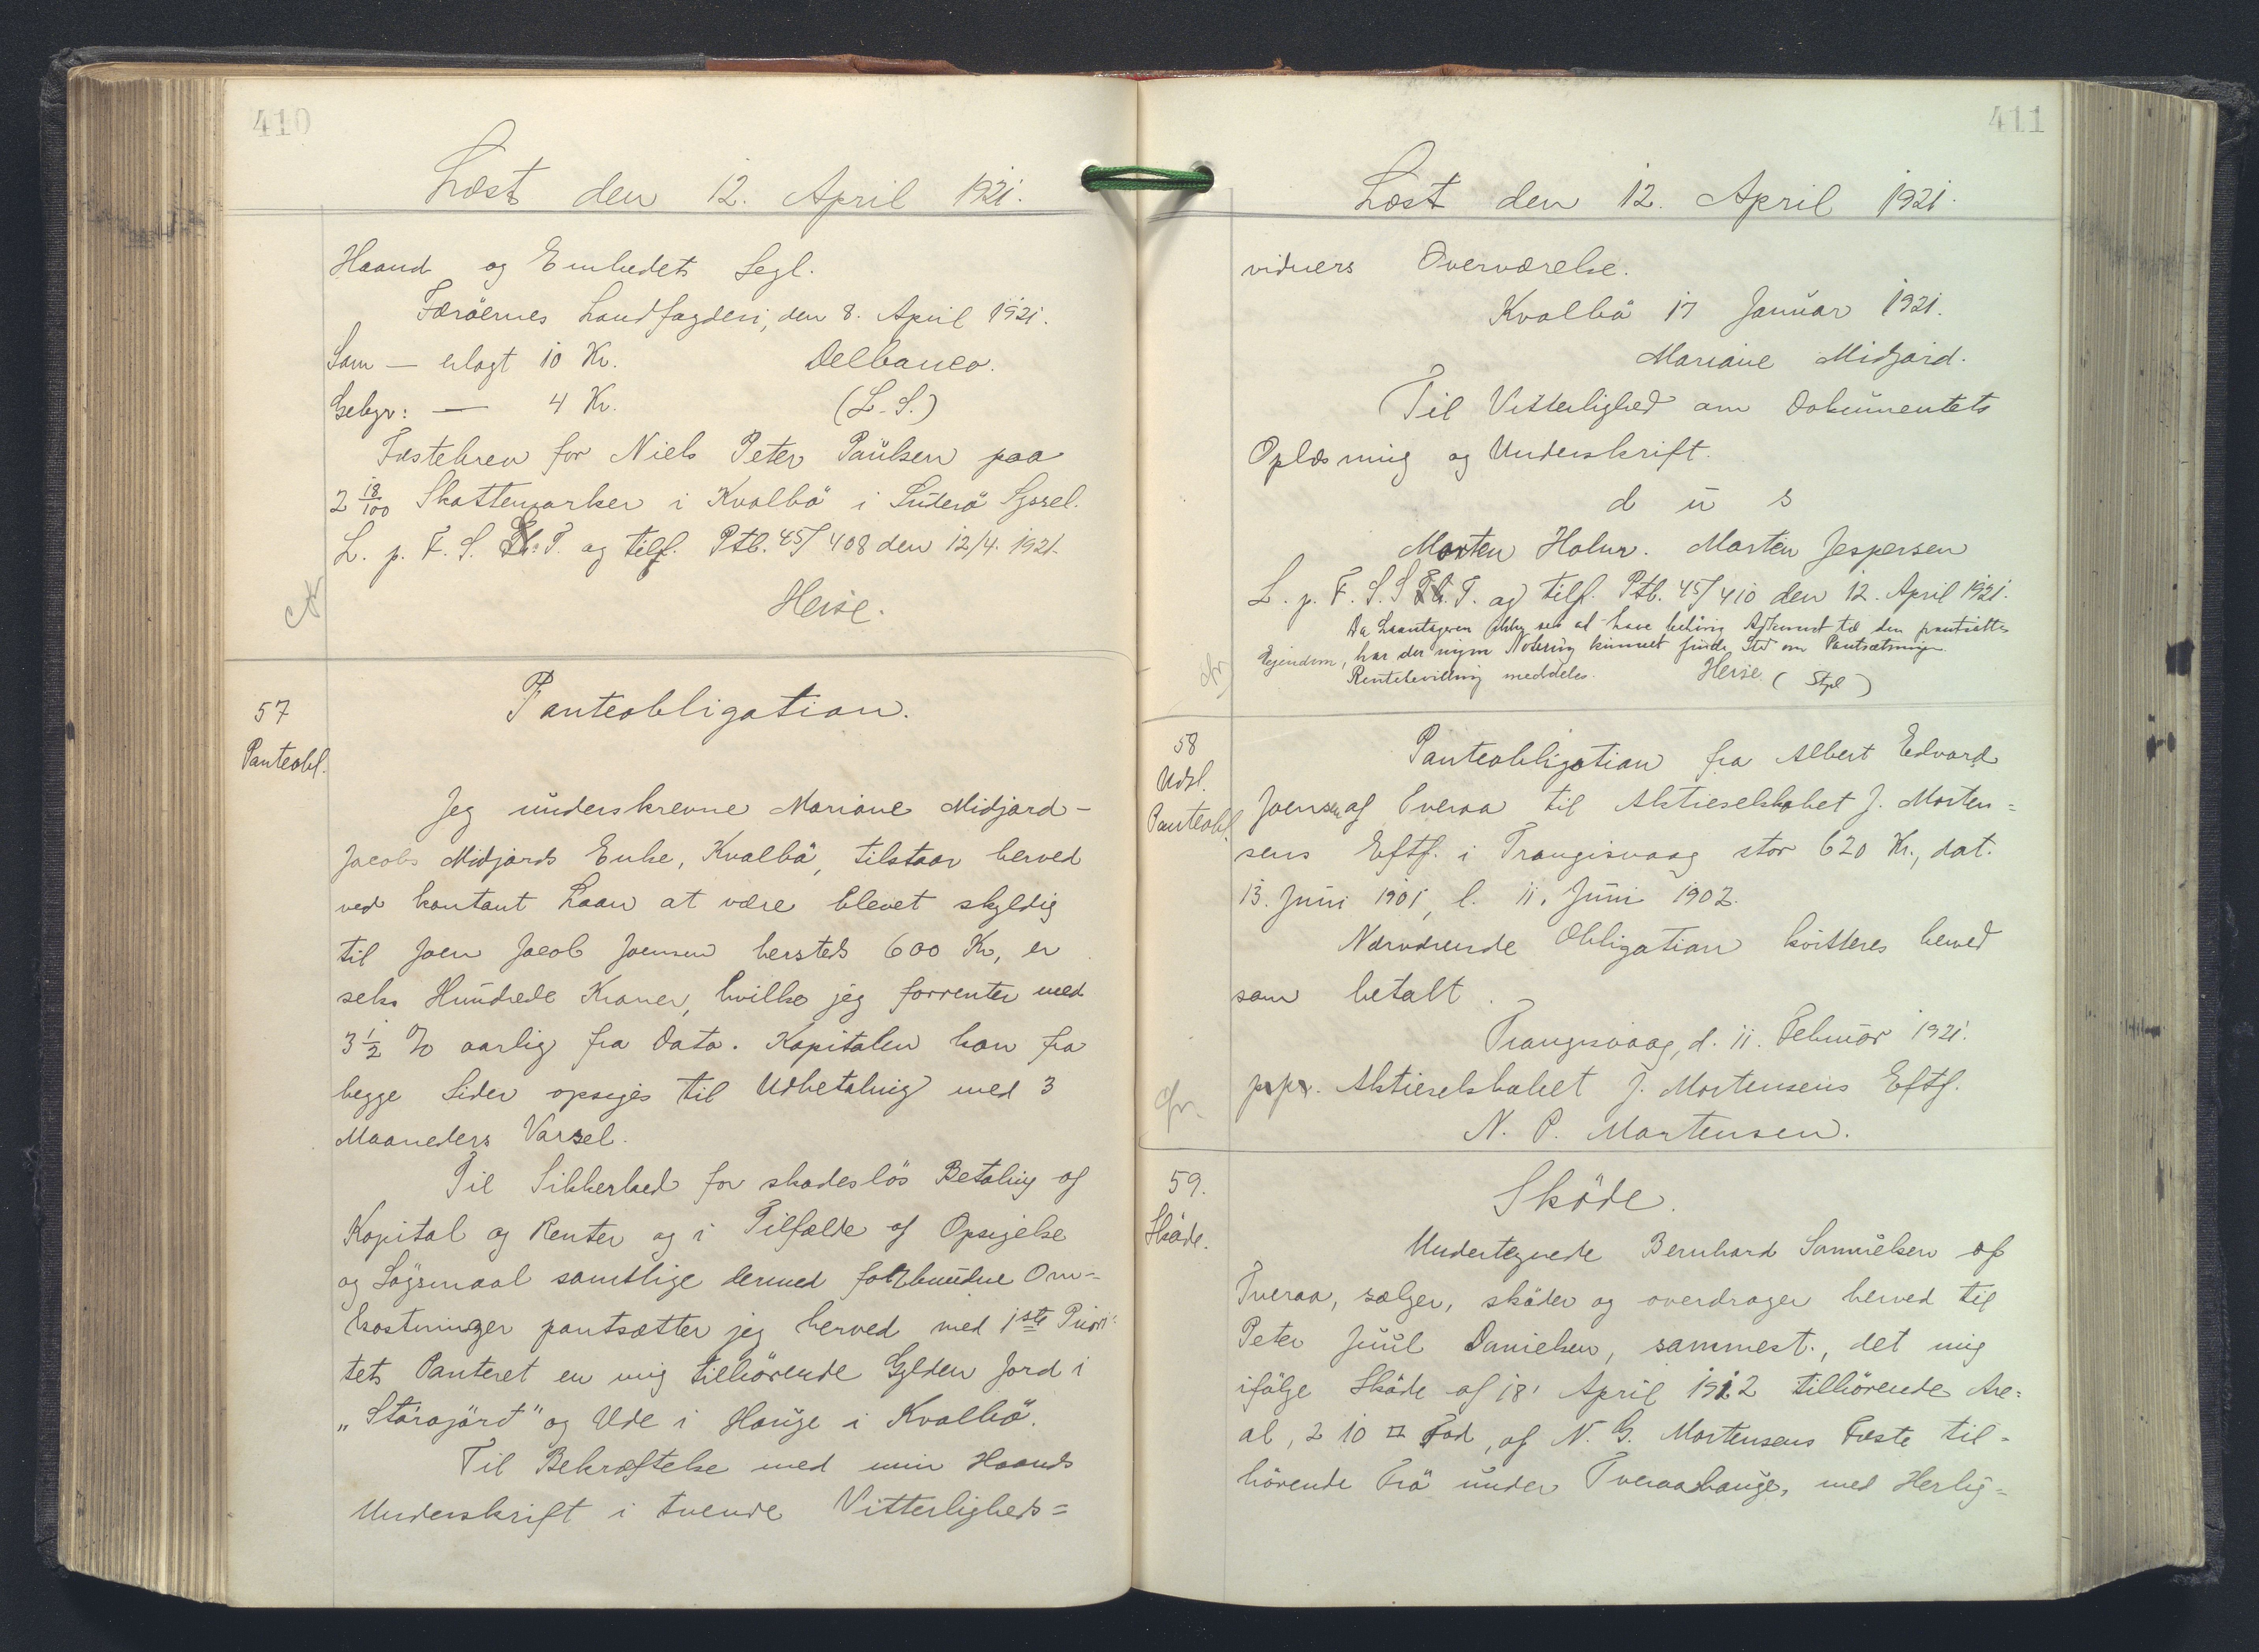 410
Læst den 12. April 1921.
Haand og Embedets Segl.
Færöernes Landfogderi, den 8. April 1921.
Sam — erlagt 10 Kr. Delbanco.
Gebyr: — 4 Kr. (L. S.)
Fæstebrev for Niels Peter Paulsen paa
2 18/100 Skattemarker i Kvalbö i Suderö Syssel.
L. p. F. S. S. Th. T. og tilf. Ptb. 45/408 den 12/4. 1921.
Heise.
57
Panteobl.
Panteobligation.
Jeg underskrevne Mariane Midjord -
Jacobs Midjords Enke, Kvalbö, tilstaar herved
ved kontant Laan at være blevet skyldig
til Joen Jacob Joensen hersteds 600 Kr, er
seks Hundrede Kroner, hvilke jeg forrenter med
3 1/2 % aarlig fra Dato. Kapitalen kan fra
begge Sider opsiges til Udbetaling med 3
Maaneders Varsel.
Til Sikkerhed for skadeslös Betaling af
Kapital og Renter og i Tilfælde af Opsigelse
og Søgsmaal samtlige dermed forbundne Om-
kostninger pantsætter jeg herved med 1ste Priori-
tets Panteret en mig tilhörende Gylden Jord i
„Stórajørd" og Ude i Hauge i Kvalbö.
Til Bekræftelse med min Haands
Underskrift i tvende Vitterligheds=
411
Læst den 12. April 1921.
vidners Overværelse.
Kvalbö 17 Januar 1921.
Mariane Midjord.
Til Vitterlighed om Dokumentets
Oplæsning og Underskrift.
d u s
Morten Holm. Morten Jespersen
L. p. F. S. S Th. T. og tilf. Ptb. 45/410 den 12. April 1921.
Da Laantageren ikke ses at have behörig Adkomst til den pantsatte
Ejendom, har der ingen Notering kunnet finde Sted om Pantsætningen.
Rentebevilling meddeles. Heise. (Stpl)
58
Udsl.
Panteobl.
Panteobligation fra Albert Edvard
Joensen af Tveraa til Aktieselskabet J. Morten=
sens Eftf. i Trangisvaag stor 620 Kr., dat.
13. Juni 1901, l. 11. Juni 1902.
Nærværende Obligation kvitteres herved
som betalt.
Trangisvaag, d. 11. Februar 1921.
pr pr. Aktieselskabet J. Mortensens Eftf.
N. P. Mortensen.
59.
Sköde.
Sköde.
Undertegnede Bernhard Samuelsen af
Tveraa, sælger, sköder og overdrager herved til
Peter Juul Danielsen, sammest., det mig
ifölge Sköde af 18' April 1912 tilhörende Are=
al, 210 □ Fod, af N. G. Mortensens Fæste til=
hörende Trö under Tveraahauge, med Herlig=